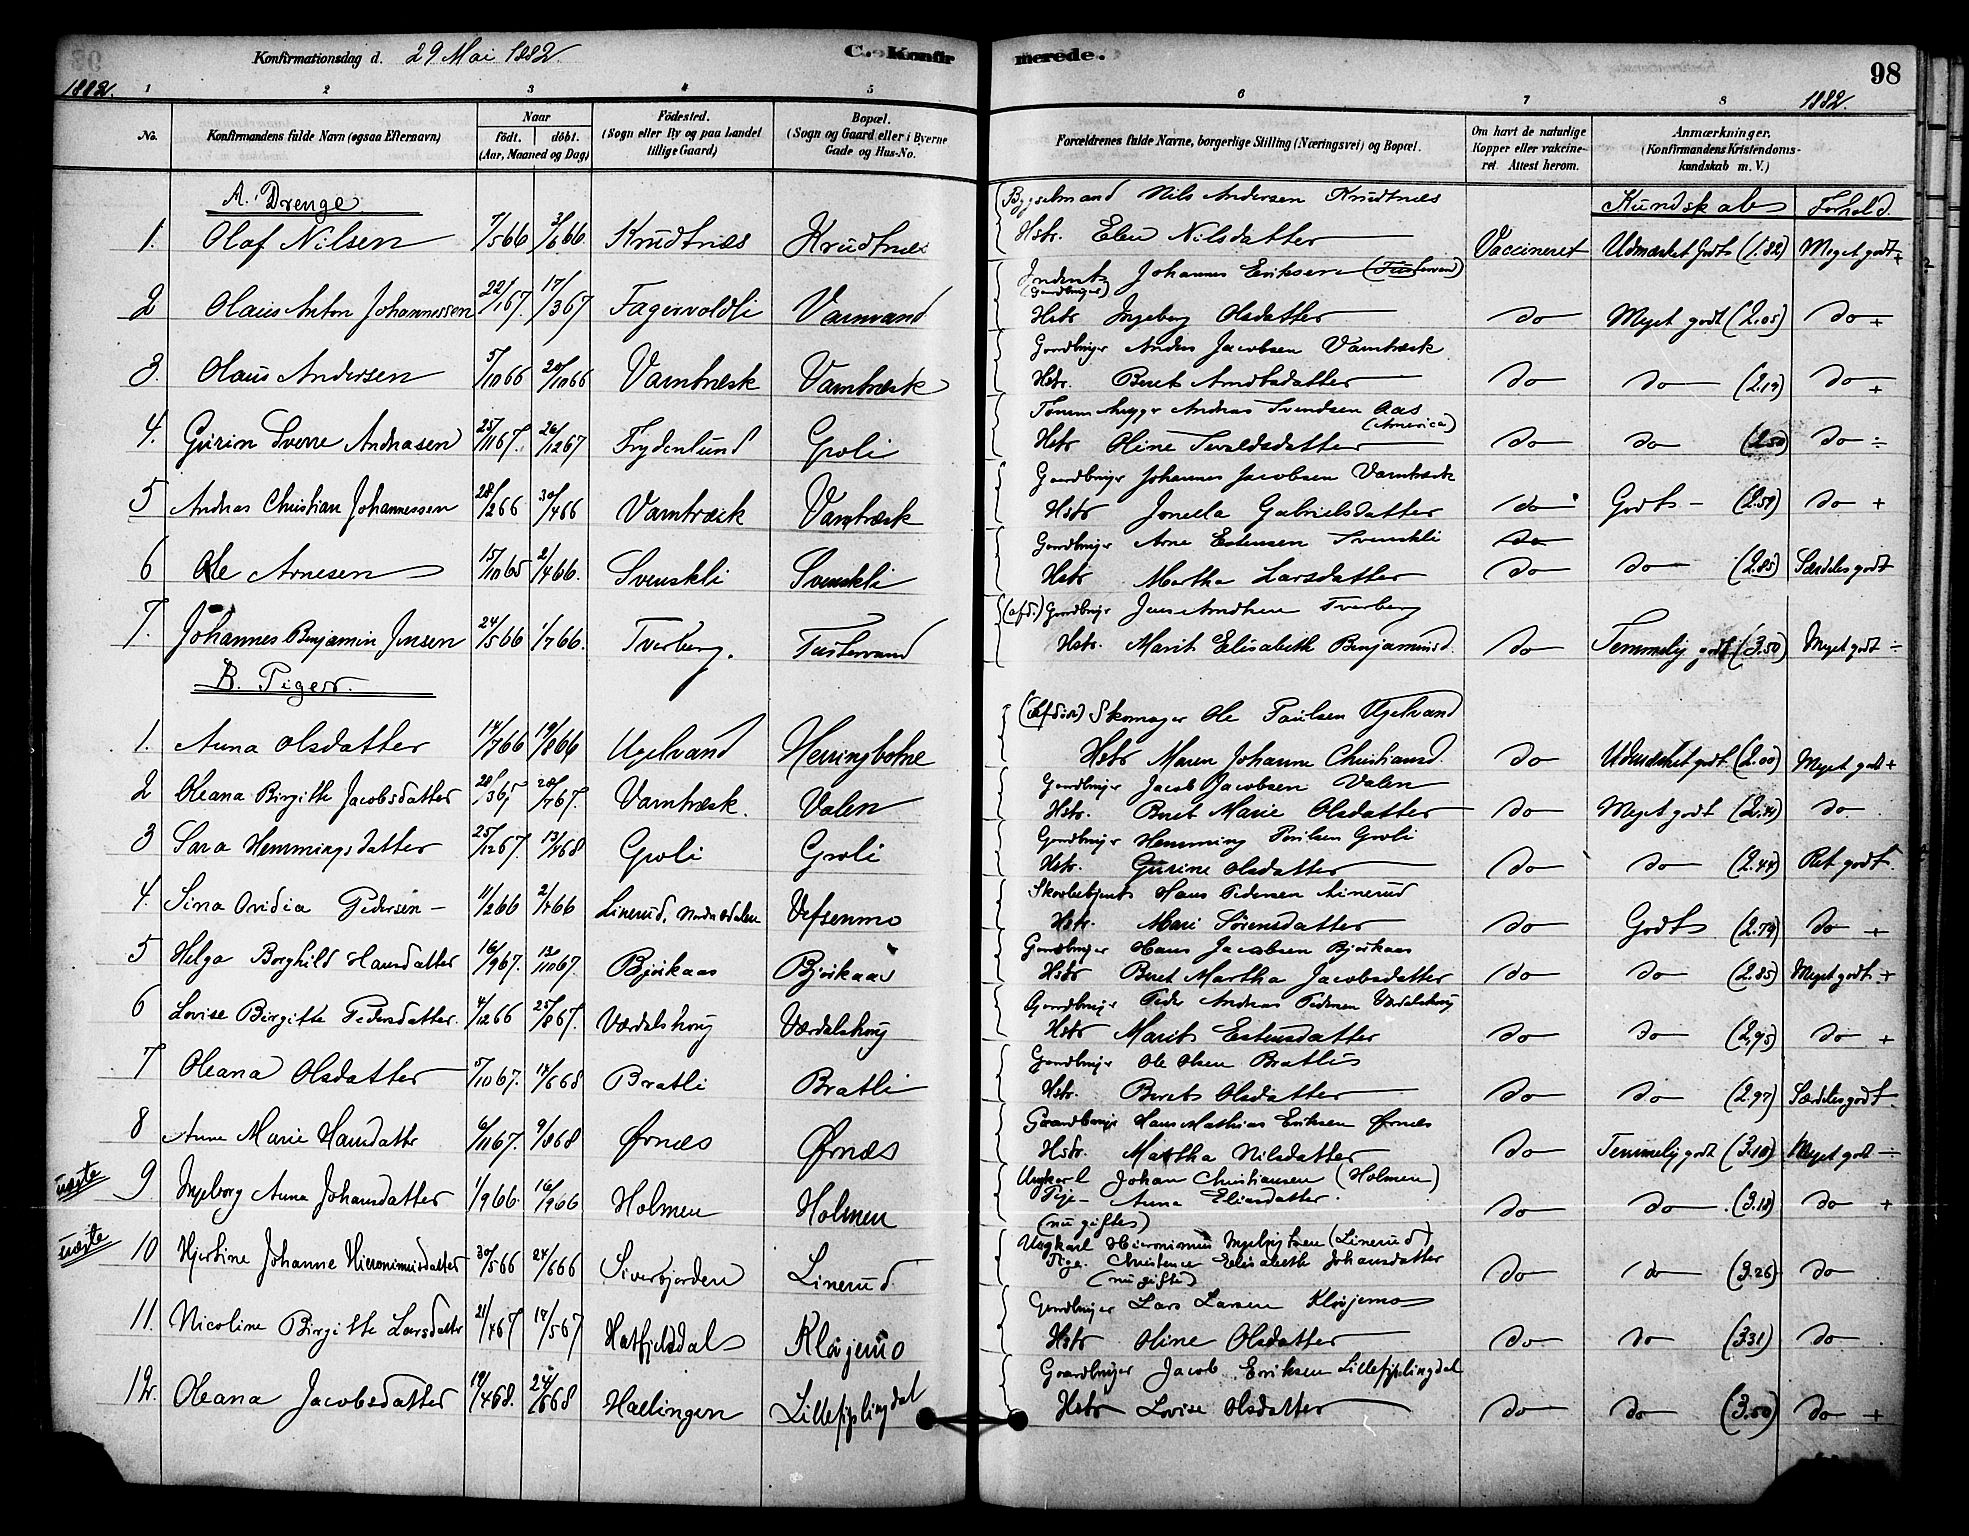 Konfirmationsdag d. 29 Mai 1882.
C. Konfirmerede.
98
1882.
1882.
1 2 3 4 5 6 7 8
No.
Konfirmandens fulde Navn (ogsaa Efternavn)
Naar
født. døbt.
(Aar, Maaned og Dag)
Fødested.
(Sogn eller By og paa Landet
tillige Gaard)
Bopæl.
(Sogn og Gaard eller i Byerne
Gade og Hus-No.
Forældrenes fulde Navne, borgerlige Stilling (Næringsvei) og Bopæl.
Om havt de naturlige
Kopper eller vakcine-
ret Attest herom.
Anmærkninger.
(Konfirmandens Kristendoms-
kundskab m. V.)
A. Drenge
Kundskab Forhold.
Bygselmand Nils Andersen Krudtnæs
1. Olaf Nilsen 7/5 66 3/6 66. Krudtnæs Krudtnæs Hstr. Elen Nilsdatter Vaccineret Udmærket godt (1.82) Meget godt +
Johannes Eriksen (Tustervand)
(Gaardbruger)
2 Olaus Anton Johannessen 22/1 67. 17/3 67 Fagervoldli Varnvand Hstr Ingeborg Olsdatter do Meget godt (2.05) do +
Gaardbruger Anders Jacobsen Varntræsk
3. Olaus Andersen 5/10 66 20/10 66 Varntræsk Varntræsk Hstr. Beret Arndtsdatter do do (2.19) do +
Tømmerhugger Andreas Svendsen Aas
(America)
4. Gurin Sverre Andreasen 25/11 67. 26/12 67 Frydenlund Groli Hstr Oline Sevaldsdatter do do (2.50) do ÷
Gaardbruger Johannes Jacobsen Varntræsk
5 Andreas Christian Johannessen 28/2 66 30/4 66 Varntræsk Varntræsk Hstr Jonella Gabrielsdatter do Godt – (2.59) do +
Gaardbruger Arne Estensen Svenskli do
6 Ole Arnesen 15/10 65 2/4 66. Svenskli Svenskli Hstr Martha Larsdatter do do (2.85) Særdeles godt
(afd.) Gaardbruger Jens Arndtsen Tverberg
7. Johannes Benjamin Jensen 24/5 66 1/7 66. Tverberg. Tustervand Hstr. Marit Elisabeth Benjaminsd. do Temmelig godt (3.50) Meget godt ÷
B. Piger.
(Afdøde) Skomager Ole Paulsen Ugelvand
1. Anna Olsdatter 14/7 66 19/8 66 Ugelvand Herringbotne Hstr Maren Johanne Christiansd. do Udmærket godt. (2.00) Meget godt +
Gaardbruger Jacob Jacobsen Valen
2 Oleana Birgitte Jacobsdatter Varntræsk. Valen Hstr. Beret Marie Olsdatter do Meget godt do
Gaardbruger Hemming Paulsen Groli
3 Sara Hemmingsdatter 25/12 67. 13/4 68 Groli Groli Hstr. Gurine Olsdatter do do (2.44) Ret godt.
Hans Pedersen Linerud
4. Sina Ovidia Pedersen – 11/2 66 2/4 66 Linerud, Vefsenmo Hstr. Mari Sørensdatter do Godt (2.79) do +
Gaardbruger Hans Jacobsen Bjørkaas
5 Helga Borghild Hansdatter 16/9 67. 13/10 67. Bjørkaas Bjørkaas Hstr Beret Martha Jacobsdatter do do (2.85) Meget godt +
Gaardbruger Peder Andreas Pedersen Værdalshoug
6 Lovise Birgitte Pedersdatter. 4/12 66 25/8 67. Værdalshoug Værdalshoug Hstr Marit Estensdatter do do (2.95) do +
Gaardbruger Ole Olsen Bratli
7 Oleana Olsdatter 5/10 67. 14/6 68 Bratli Bratli Hstr. Beret Olsdatter do do (2.97) Særdeles godt
Gaardbruger Hans Mathias Eriksen Ørnæs
8 Anne Marie Hansdatter 6/11 67. 9/8 68 Ørnæs Ørnæs Hstr. Martha Nilsdatter do Temmelig godt (3.10) Meget godt ÷
Ungkarl Johan Christiansen (Holmen)
uægte 9 Ingeborg Anna Johansdatter 1/9 66. 16/9 66 Holmen Holmen Pige – Anna Eliasdatter. do do (3.18) do +
(nu giftes)
Ungkarl Hieronimus Ingebrigtsen (Linerud)
uægte 10 Hjertine Johanne Hieronimusdatter 30/5 66 24/6 66 Siverbjorden Linerud. Pige. Christence Elisabeth Johansdatter do do (3.26) do
(nu gifte)
Gaardbruger Lars Larsen Kløjemo
11. Nicoline Birgitte Larsdatter 21/4 67 14/5 67 Hatfjelddal Kløjemo Hstr Oline Olsdatter do do (3.31) do
Gaardbruger Jacob Eriksen Lillefiplingdal
12. Oleana Jacobsdatter 19/4 68. 24/6 68 Hællingen Lillefiplingdal Hstr Lovise Olsdatter do do (3.50) do +